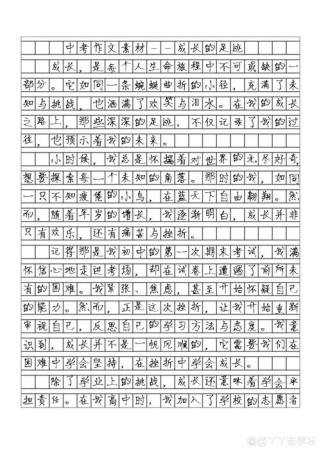 中考作文素材--成长的足迹
成长，是每个人生命旅程中不可或缺的一
部分。它如同一条蜿蜒曲折的小径，充满了未
知与挑战，也洒满了欢笑与泪水。在我的成长
之路上，那些深深的足迹，不仅记录了我的过
往，也预示着我的未来。
小时候，我总是怀揣着对世界的无尽好奇，
想要探索每一个未知的角落。那时的我，如同
一只不知疲倦的小鸟，在蓝天下自由翱翔。然
而，随着年岁的增长，我逐渐明白，成长并非
只有欢乐，还有痛苦与挫折。
记得那是我初中的第一次期末考试，我满
怀信心地走进考场，却在试卷上遭遇了前所未
有的困难。我紧张、焦虑，甚至开始怀疑自己
的能力。然而，正是这次挫折，让我开始重新
审视自己，反思自己的学习方法与态度。我意
识到，成长并不是一帆风顺的，它需要我们在
困难中学会坚持，在挫折中学会成长。
除了学业上的挑战，成长还意味着学会承
担责任。在我高中时，我加入了学校的志愿者